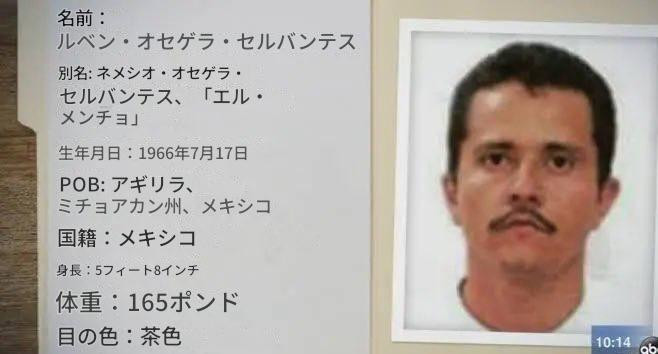 名前：
ルベン・オセゲラ・セルバンテス
別名: ネメシオ・オセゲラ・
セルバンテス、「エル・
メンチョ」
生年月日：1966年7月17日
POB: アギリラ、
ミチョアカン州、メキシコ
国籍：メキシコ
身長：5フィート8インチ
体重：165ポンド
目の色：茶色
10:14